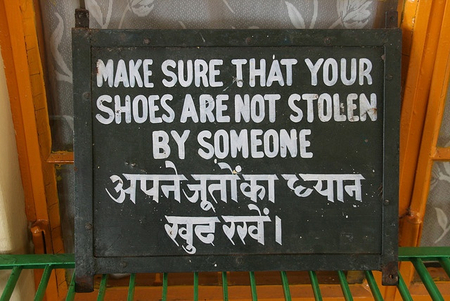 MAKE SURE THAT YOUR
SHOES ARE NOT STOLEN
BY SOMEONE
अपने जूतों का ध्यान
खुद रखें।